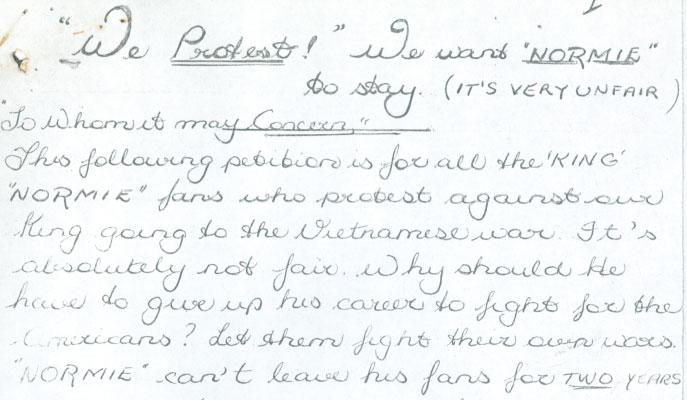 "We Protest!" We want "NORMIE"
to stay. (IT'S VERY UNFAIR)
"To Whom it may Concern,"
This following petition is for all the 'KING'
"NORMIE" fans who protest against our
King going to the Vietnamese war. It's
absolutely not fair. Why should He
have to give up his career to fight for the
Americans? Let them fight their own wars.
"NORMIE" can't leave his fans for TWO YEARS